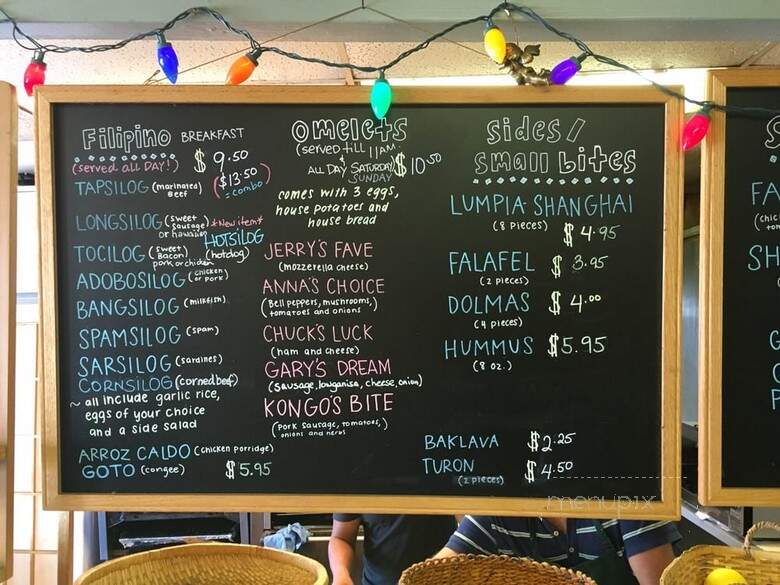 Filipino BREAKFAST
(served all DAY!) $9.50
($13.50 = combo)
TAPSILOG (marinated Beef)
LONGSILOG (sweet sausage or hawaiian) *New item*
HOTSILOG (hotdog)
TOCILOG (sweet Bacon) pork or chicken
ADOBOSILOG (chicken or pork)
BANGSILOG (milkfish)
SPAMSILOG (spam)
SARSILOG (sardines)
CORNSILOG (corned beef)
~ all include garlic rice,
eggs of your choice
and a side salad
ARROZ CALDO (chicken porridge)
GOTO (congee) $5.95
omelets
(served till 11AM.
& ALL DAY SATURDAY SUNDAY $10.50
comes with 3 eggs,
house potatoes and
house bread
JERRY'S FAVE
(mozzerella cheese)
ANNA'S CHOICE
(Bell peppers, mushrooms,
tomatoes and onions)
CHUCK'S LUCK
(ham and cheese)
GARY'S DREAM
(sausage, longanisa, cheese, onion)
KONGO'S BITE
(pork sausage, tomatoes,
onions and herbs)
sides/
small bites
LUMPIA SHANGHAI
(8 pieces) $4.95
FALAFEL $3.95
(2 pieces)
DOLMAS $4.00
(4 pieces)
HUMMUS $5.95
(8 oz.)
BAKLAVA $2.25
TURON $4.50
(2 pieces)
menupix
S
FA
(chic
SH
G
C
P